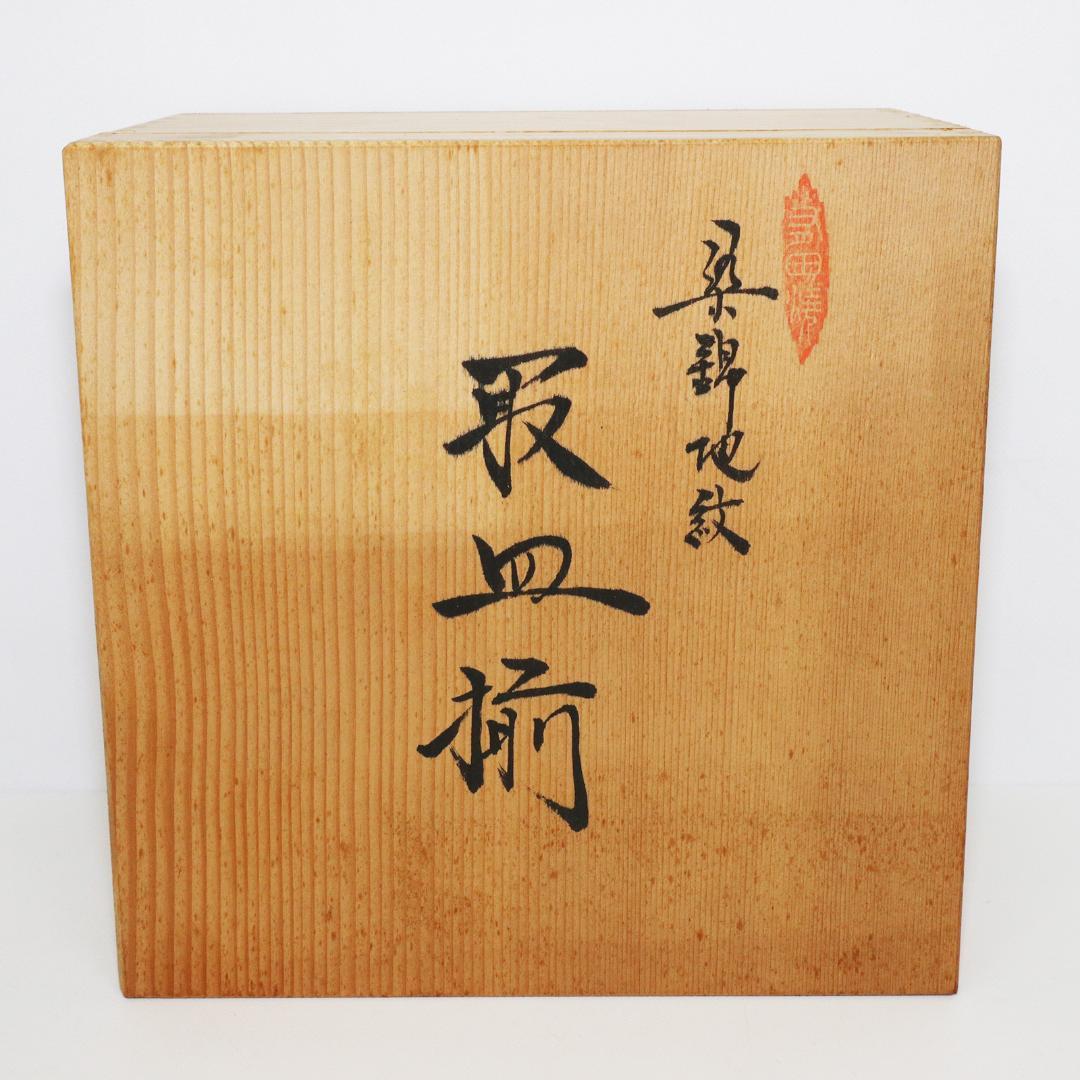 有田焼
染錦地紋
取皿揃